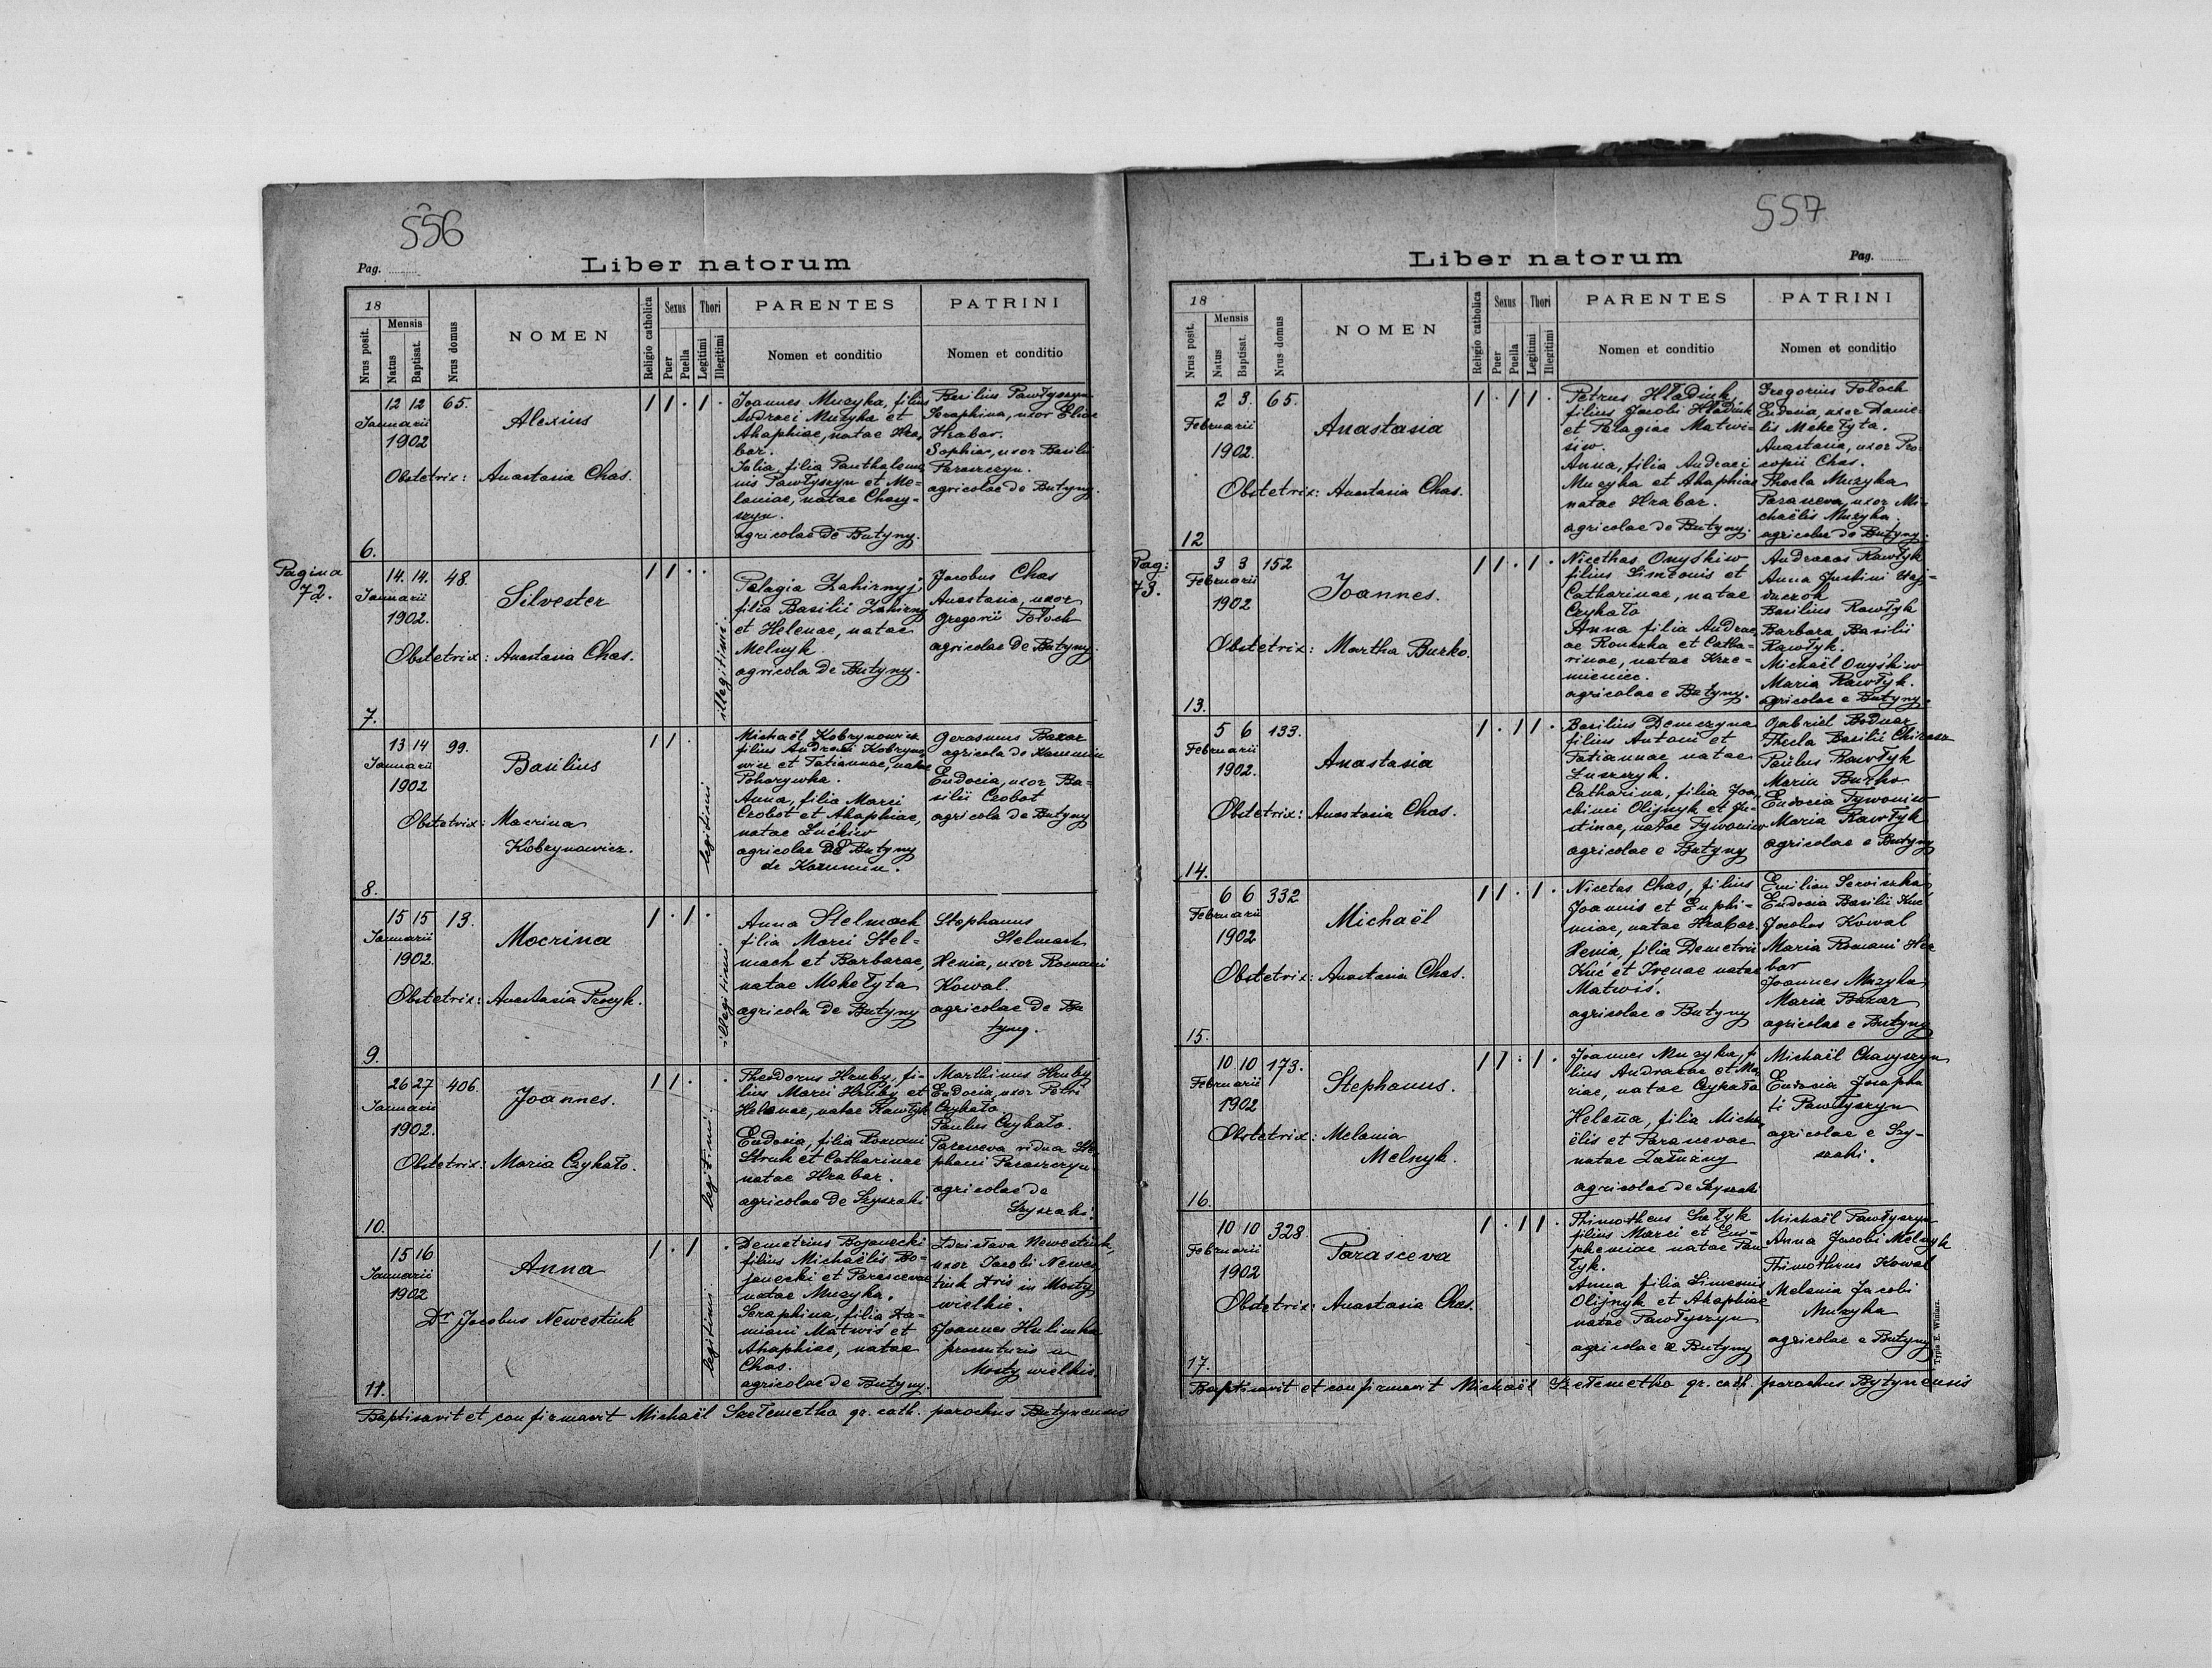 556
Pag.
Liber natorum
18
Nrus posit.
Mensis
Natus
Baptisat.
Nrus domus
NOMEN
Religio catholica
Sexus
Puer
Puella
Thori
Legitimi
Illegitimi
PARENTES
Nomen et conditio
PATRINI
Nomen et conditio
6.
12 12 65.
Januarii
1902
Alexius
Obstetrix: Anastasia Chas.
1 1 . 1 .
Joannes Muzyka, filius
Andraei Muzyka et
Ahaphiae, natae Hra-
bar.
Julia, filia Panthalemo
nis Pawłyszyn et Me-
laniae, natae Chary-
szyn.
agricolae de Butyny.
Basilius Pawłyszyn
Seraphina, uxor Eliae
Hrabar.
Sophia, uxor Basilii
Paraszczyn.
agricolae de Butyny.
Pagina
72.
7.
14. 14. 48.
Januarii
1902.
Silvester
Obstetrix: Anastasia Chas.
1 1 . .
illegitimi.
Pelagia Zahirnyj
filia Basilii Zahirny
et Helenae, natae
Melnyk.
agricola de Butyny.
Jacobus Chas
Anastasia, uxor
Gregorii Tołoch
agricolae de Butyny.
8.
13 14 99.
Januarii
1902
Basilius
Obstetrix: Macrina
Kobrynowicz.
1 1 .
legitimi
Michaël Kobrynowicz
filius Andraei Kobryno
wicz et Tatiannae, natae
Pohorywka.
Anna, filia Marci
Czobot et Ahaphiae,
natae Łućkiw
agricolae de Butyny
de Kazumin.
Gerasmus Bazar
agricola de Kazumin
Eudocia, uxor Ba-
silii Czobot
agricola de Butyny
9.
15 15 13.
Januarii
1902.
Mocrina
Obstetrix: Anastasia Procyk.
1 . 1 .
illegitimi
Anna Stelmach
filia Marci Stel-
mach et Barbarae,
natae Mekełyta
agricola de Butyny
Stephanus
Stelmach
Henia, uxor Romani
Kowal.
agricolae de Bu
tyny.
10.
26 27 406.
Januarii
1902.
Joannes.
Obstetrix: Maria Czykało.
1 1 . .
legitimi.
Theodorus Hruby, fi-
lius Marci Hruby et
Helenae, natae Kawłyk
Eudosia, filia Romani
Struk et Catharinae
natae Hrabar.
agricolae de Szyszaki
Marthinus Hruby
Eudocia, uxor Petri
Czykało.
Paulus Czykało.
Parasceva vidua Ste-
phani Paraszczyn
agricolae de
Szyszaki.
11.
15 16
Januarii
1902
Anna
Dr Jacobus Newestiuk
1 . 1 .
legitimi.
Demetrius Bojanecki
filius Michaëlis Bo-
janecki et Parascevae
natae Muzyka.
Seraphina, filia Da-
miani Matwiś et
Ahaphiae, natae
Chas.
agricolae de Butyny.
Zdzisława Newestiuk,
uxor Jacobi Newes
tiuk Dris in Mosty
wielkie.
Joannes Hulimka
in
Mosty wielkie.
Baptisavit et confirmavit Michaël Szełemetko gr. cath. parochus Butynensis
557
Liber natorum
Pag.
18
Nrus posit.
Mensis
Natus
Baptisat.
Nrus domus
NOMEN
Religio catholica
Sexus
Puer
Puella
Thori
Legitimi
Illegitimi
PARENTES
Nomen et conditio
PATRINI
Nomen et conditio
12
2 3. 65.
Februarii
1902.
Anastasia
Obstetrix: Anastasia Chas.
1 . 1 1 .
Petrus Hładiuk,
filius Jacobi Hładiuk
et Pelagiae Matwi-
śiw.
Anna, filia Andraei
Muzyka et Ahaphiae
natae Hrabar.
agricolae de Butyny.
Gregorius Tołoch
Eudosia, uxor Danie-
lis Mekełyta.
Anastasia, uxor Pro
copii Chas.
Thecla Muzyka
Parasceva, uxor Mi-
chaëlis Muzyka.
agricolae de Butyny.
Pag:
73.
13.
3 3 152
Februarii
1902
Joannes.
Obstetrix: Martha Burko.
1 1 . 1 .
Nicethas Onyśkiw
filius Simeonis et
Catharinae, natae
Czykało
Anna filia Andrae
ae Ronczka et Catha-
rinae, natae Krze-
mieniec.
agricolae e Butyny.
Andraeas Kawłyk
Anna Justini Haj-
duczok
Basilius Kawłyk
Barbara Basilii
Kawłyk.
Michaël Onyśkiw
Maria Kawłyk.
agricolae e Butyny.
14.
5 6 133.
Februarii
1902.
Anastasia
Obstetrix: Anastasia Chas.
1 . 1 1 .
Basilius Demczyna
filius Antoni et
Tatiannae natae
Łuszczyk.
Catharina, filia Joa-
chimi Olijnyk et Ju-
stinae, natae Tywoniw
agricolae e Butyny
Gabriel Bodnar
Thecla Basilii
Paulus Kawłyk
Maria Burko
Eudocia Tywoniw
Maria Kawłyk
agricolae e Butyny
15.
6 6 332
Februarii
1902
Michaël
Obstetrix: Anastasia Chas.
1 1 . 1 .
Nicetas Chas, filius
Joannis et Euphi-
miae, natae Hrabar.
Henia, filia Demetrii
Kuć et Irenae natae
Matwiś.
agricolae e Butyny
Emilian Serviszka,
Eudocia Basilii Kuć
Jacobus Kowal
Maria Romani Hra
bar
Joannes Muzyka
Maria Bazar
agricolae e Butyny
16.
10 10 173.
Februarii
1902
Stephanus.
Obstetrix: Melania
Melnyk.
1 1 . 1 .
Joannes Muzyka, fi
lius Andraeae et Ma-
riae, natae Czykało
Helena, filia Micha
ëlis et Parascevae
natae Załużny
agricolae de Szyszaki
Michaël Charyszyn
Eudosia Josapha
ti Pawłyszyn
agricolae e Szy-
szaki.
17.
10 10 328
Februarii
1902
Parasceva
Obstetrix: Anastasia Chas.
1 . 1 1 .
Thimotheus Szłyk
filius Marci et Eu-
phemiae natae Paw
łyk.
Anna filia Simeonis
Olijnyk et Ahaphiae
natae Pawłyszyn
agricolae e Butyny
Michaël Pawłyszyn
Anna Jacobi Melnyk
Thimotheus Kowal
Melania Jacobi
Muzyka
agricolae e Butyny
Baptisavit et confirmavit Michaël Szełemetko gr. cath. parochus Bytynensis
Typis E. Winiarz.